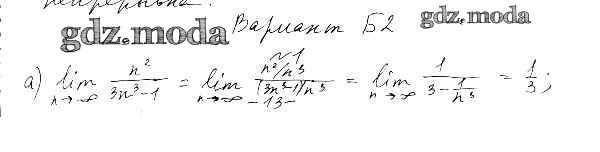 gdz.moda Вариант Б2 gdz.moda
~1
а) lim n→∞ n²/(3n³-1) = lim n→∞ (n²/n³)/((3n³-1)/n³) = lim n→∞ 1/(3-1/n³) = 1/3;
-13-